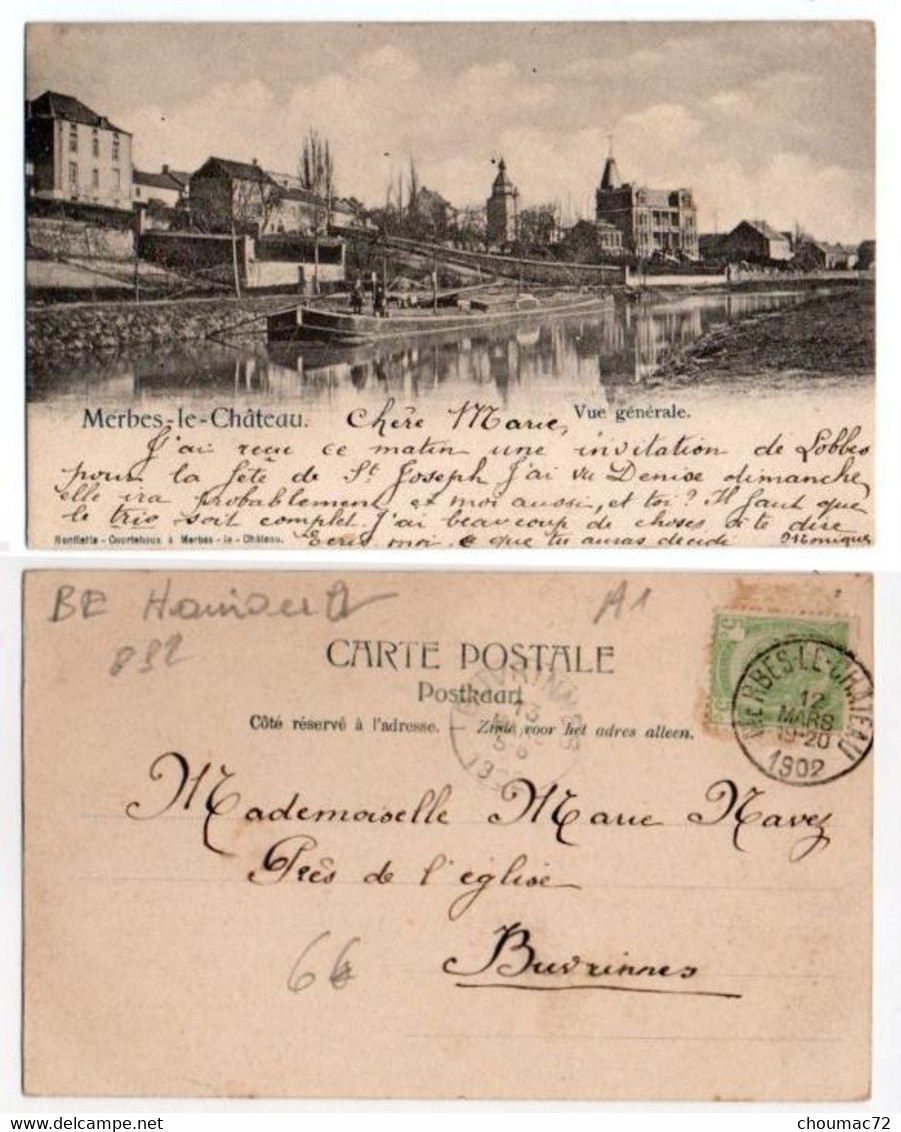 Merbes-le-Château. Chère Marie, Vue générale.
J'ai reçu ce matin une invitation de Lobbes
pour la fête de St Joseph J'ai vu Denise dimanche,
elle ira probablement et moi aussi, et toi? Il faut que
le trio soit complet. J'ai beaucoup de choses à te dire
Ecris moi ce que tu auras décidé Monique
Honflette-Courtehoux à Merbes-le-Château.
BE Hainaut A1
892
CARTE POSTALE
Postkaart
Côté réservé à l'adresse. — Zijde voor het adres alleen.
MERBES-LE-CHATEAU
12
MARS
19-20
1902
BUVRINNES
13
Mademoiselle Marie Navez
Près de l'église
Buvrinnes
66
choumac72